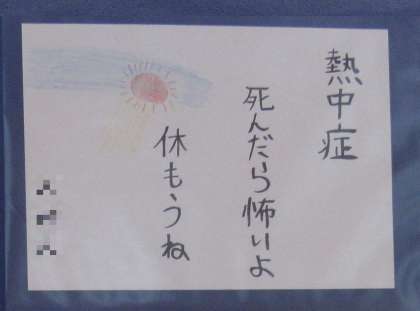 熱中症
死んだら怖いよ
休もうね